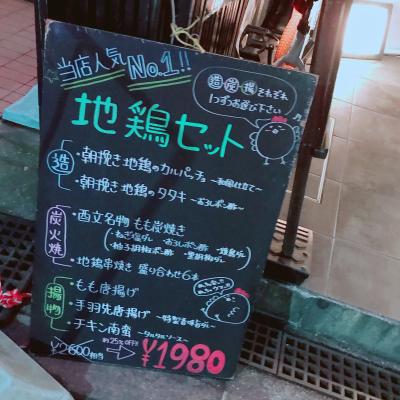 当店人気No.1!!
造 炭 揚 それぞれ
1つずつお選び下さい
地鶏セット
造
・朝挽き地鶏のカルパッチョ ~和風仕立て~
・朝挽き地鶏のタタキ ~おろしポン酢~
炭火焼
・酉立名物 もも炭焼き
(・ねぎ塩ダレ ・おろしポン酢 ・焼鳥ダレ
・柚子胡椒ポン酢 ・黒胡椒ダレ)
・地鶏串焼き 盛り合わせ6本
揚物
・もも唐揚げ
・手羽先唐揚げ ~特製旨味ダレ~
・チキン南蛮 ~タルタルソース~
¥2600相当
約25%OFF!!
¥1980